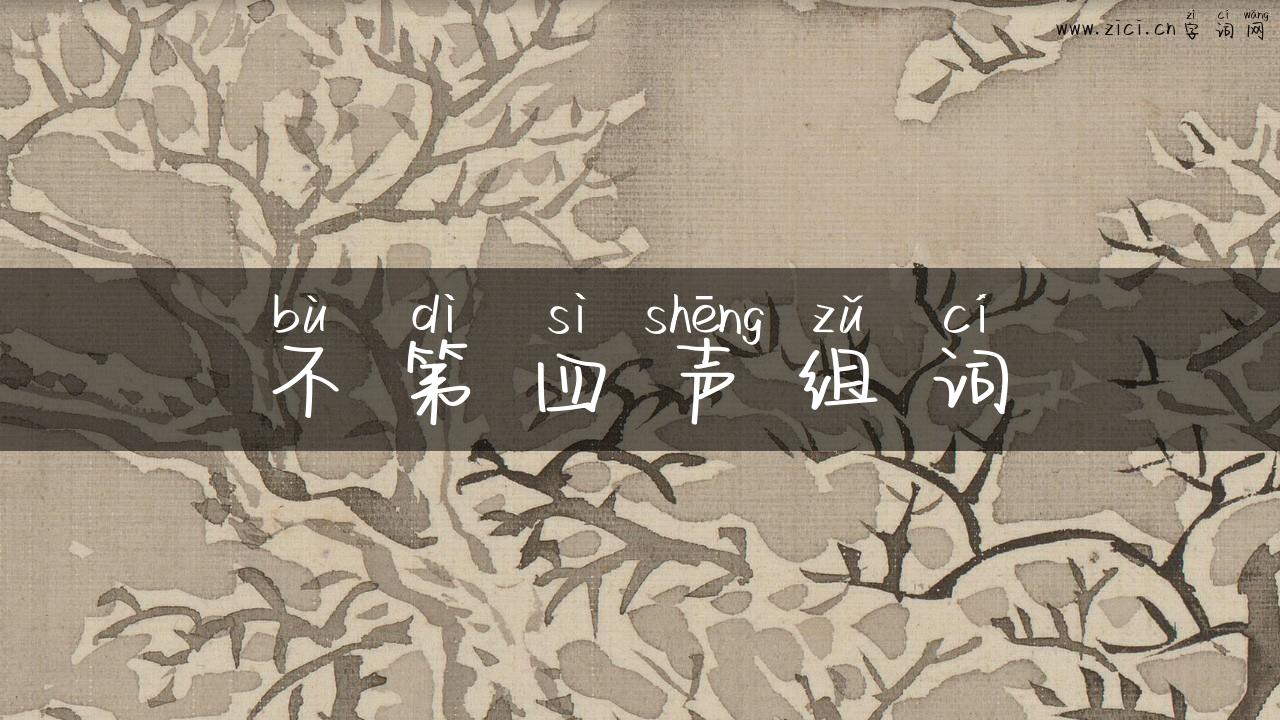 zì cí wǎng
www.zici.cn字词网
bù dì sì shēng zǔ cí
不第四声组词